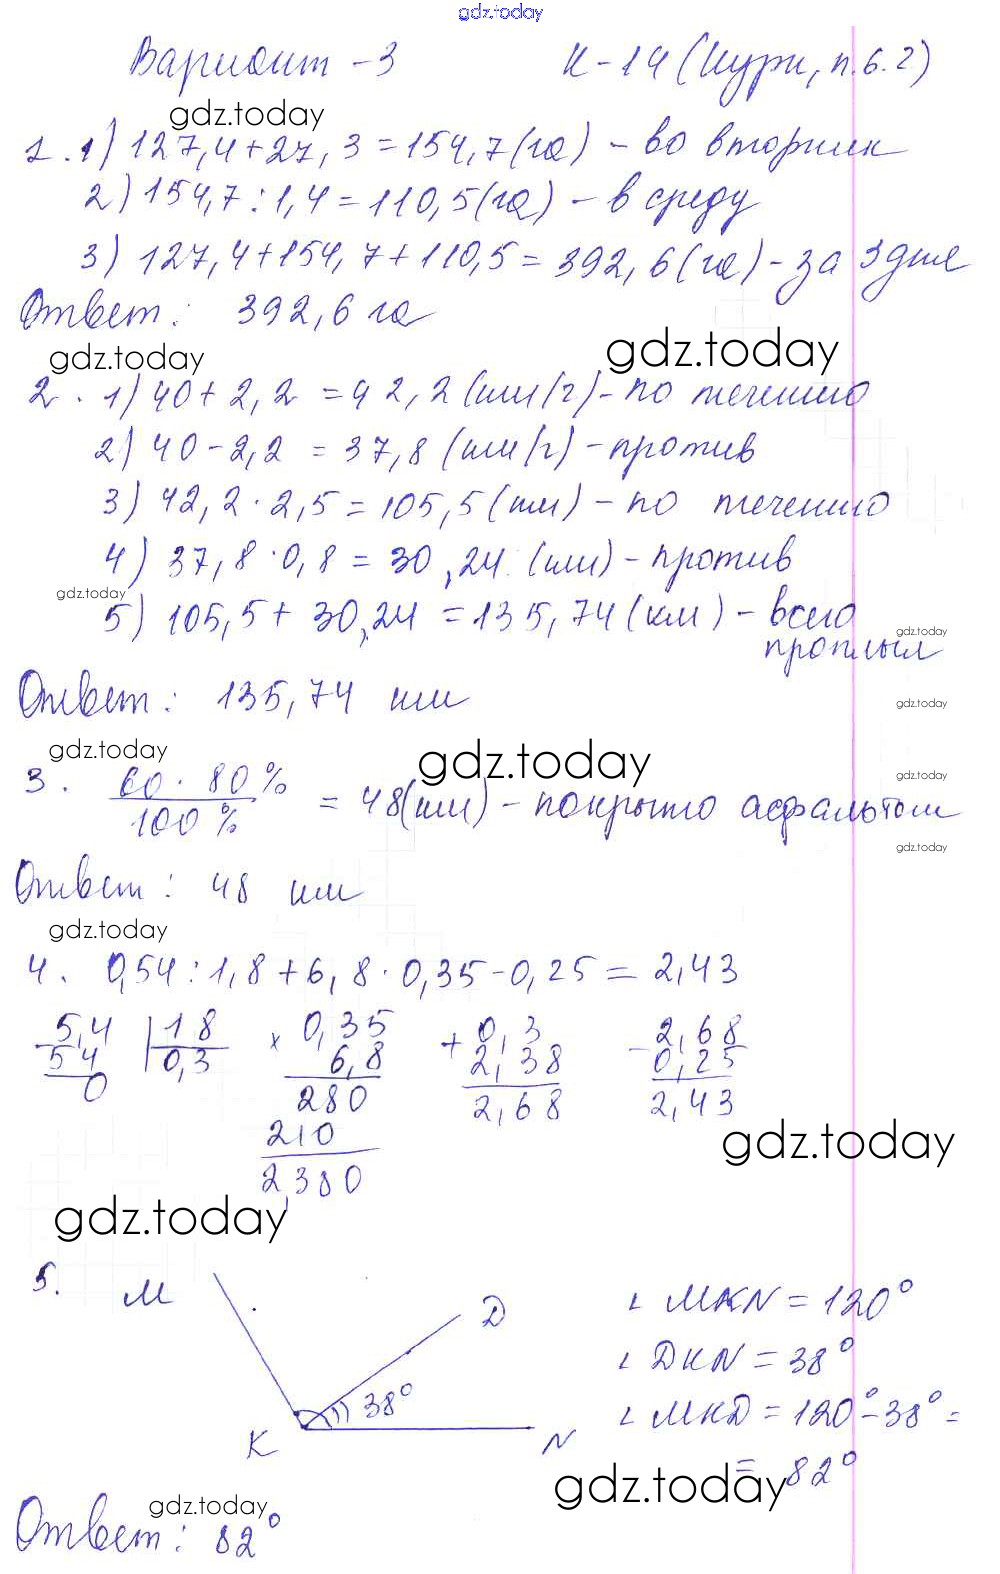 gdz.today
Вариант - 3 К-14 (Чури, п.6.2)
gdz.today
1. 1) 127,4+27,3=154,7(га) - во вторник
2) 154,7:1,4=110,5(га) - в среду
3) 127,4+154,7+110,5=392,6(га) - за 3 дня
Ответ: 392,6 га
gdz.today gdz.today
2. 1) 40+2,2=42,2(км/ч) - по течению
2) 40-2,2=37,8(км/ч) - против
3) 42,2·2,5=105,5(км) - по течению
4) 37,8·0,8=30,24(км) - против
gdz.today
5) 105,5+30,24=135,74(км) - всего
gdz.today
проплыл
Ответ: 135,74 км
gdz.today
gdz.today gdz.today
3. 60·80% / 100% = 48(км) - покрыто асфальтом
gdz.today
gdz.today
Ответ: 48 км
gdz.today
4. 0,54:1,8+6,8·0,35-0,25=2,43
5,4 | 18 × 0,35 + 0,3 - 2,68
- 54 0,3 6,8 2,38 0,25
0 280 2,68 2,43
210
gdz.today
2,380
gdz.today
5. М Д ∠ МКN = 120°
∠ ДКN = 38°
38° ∠ МКД = 120° - 38° =
К N = 82°
gdz.today
gdz.today
Ответ: 82°